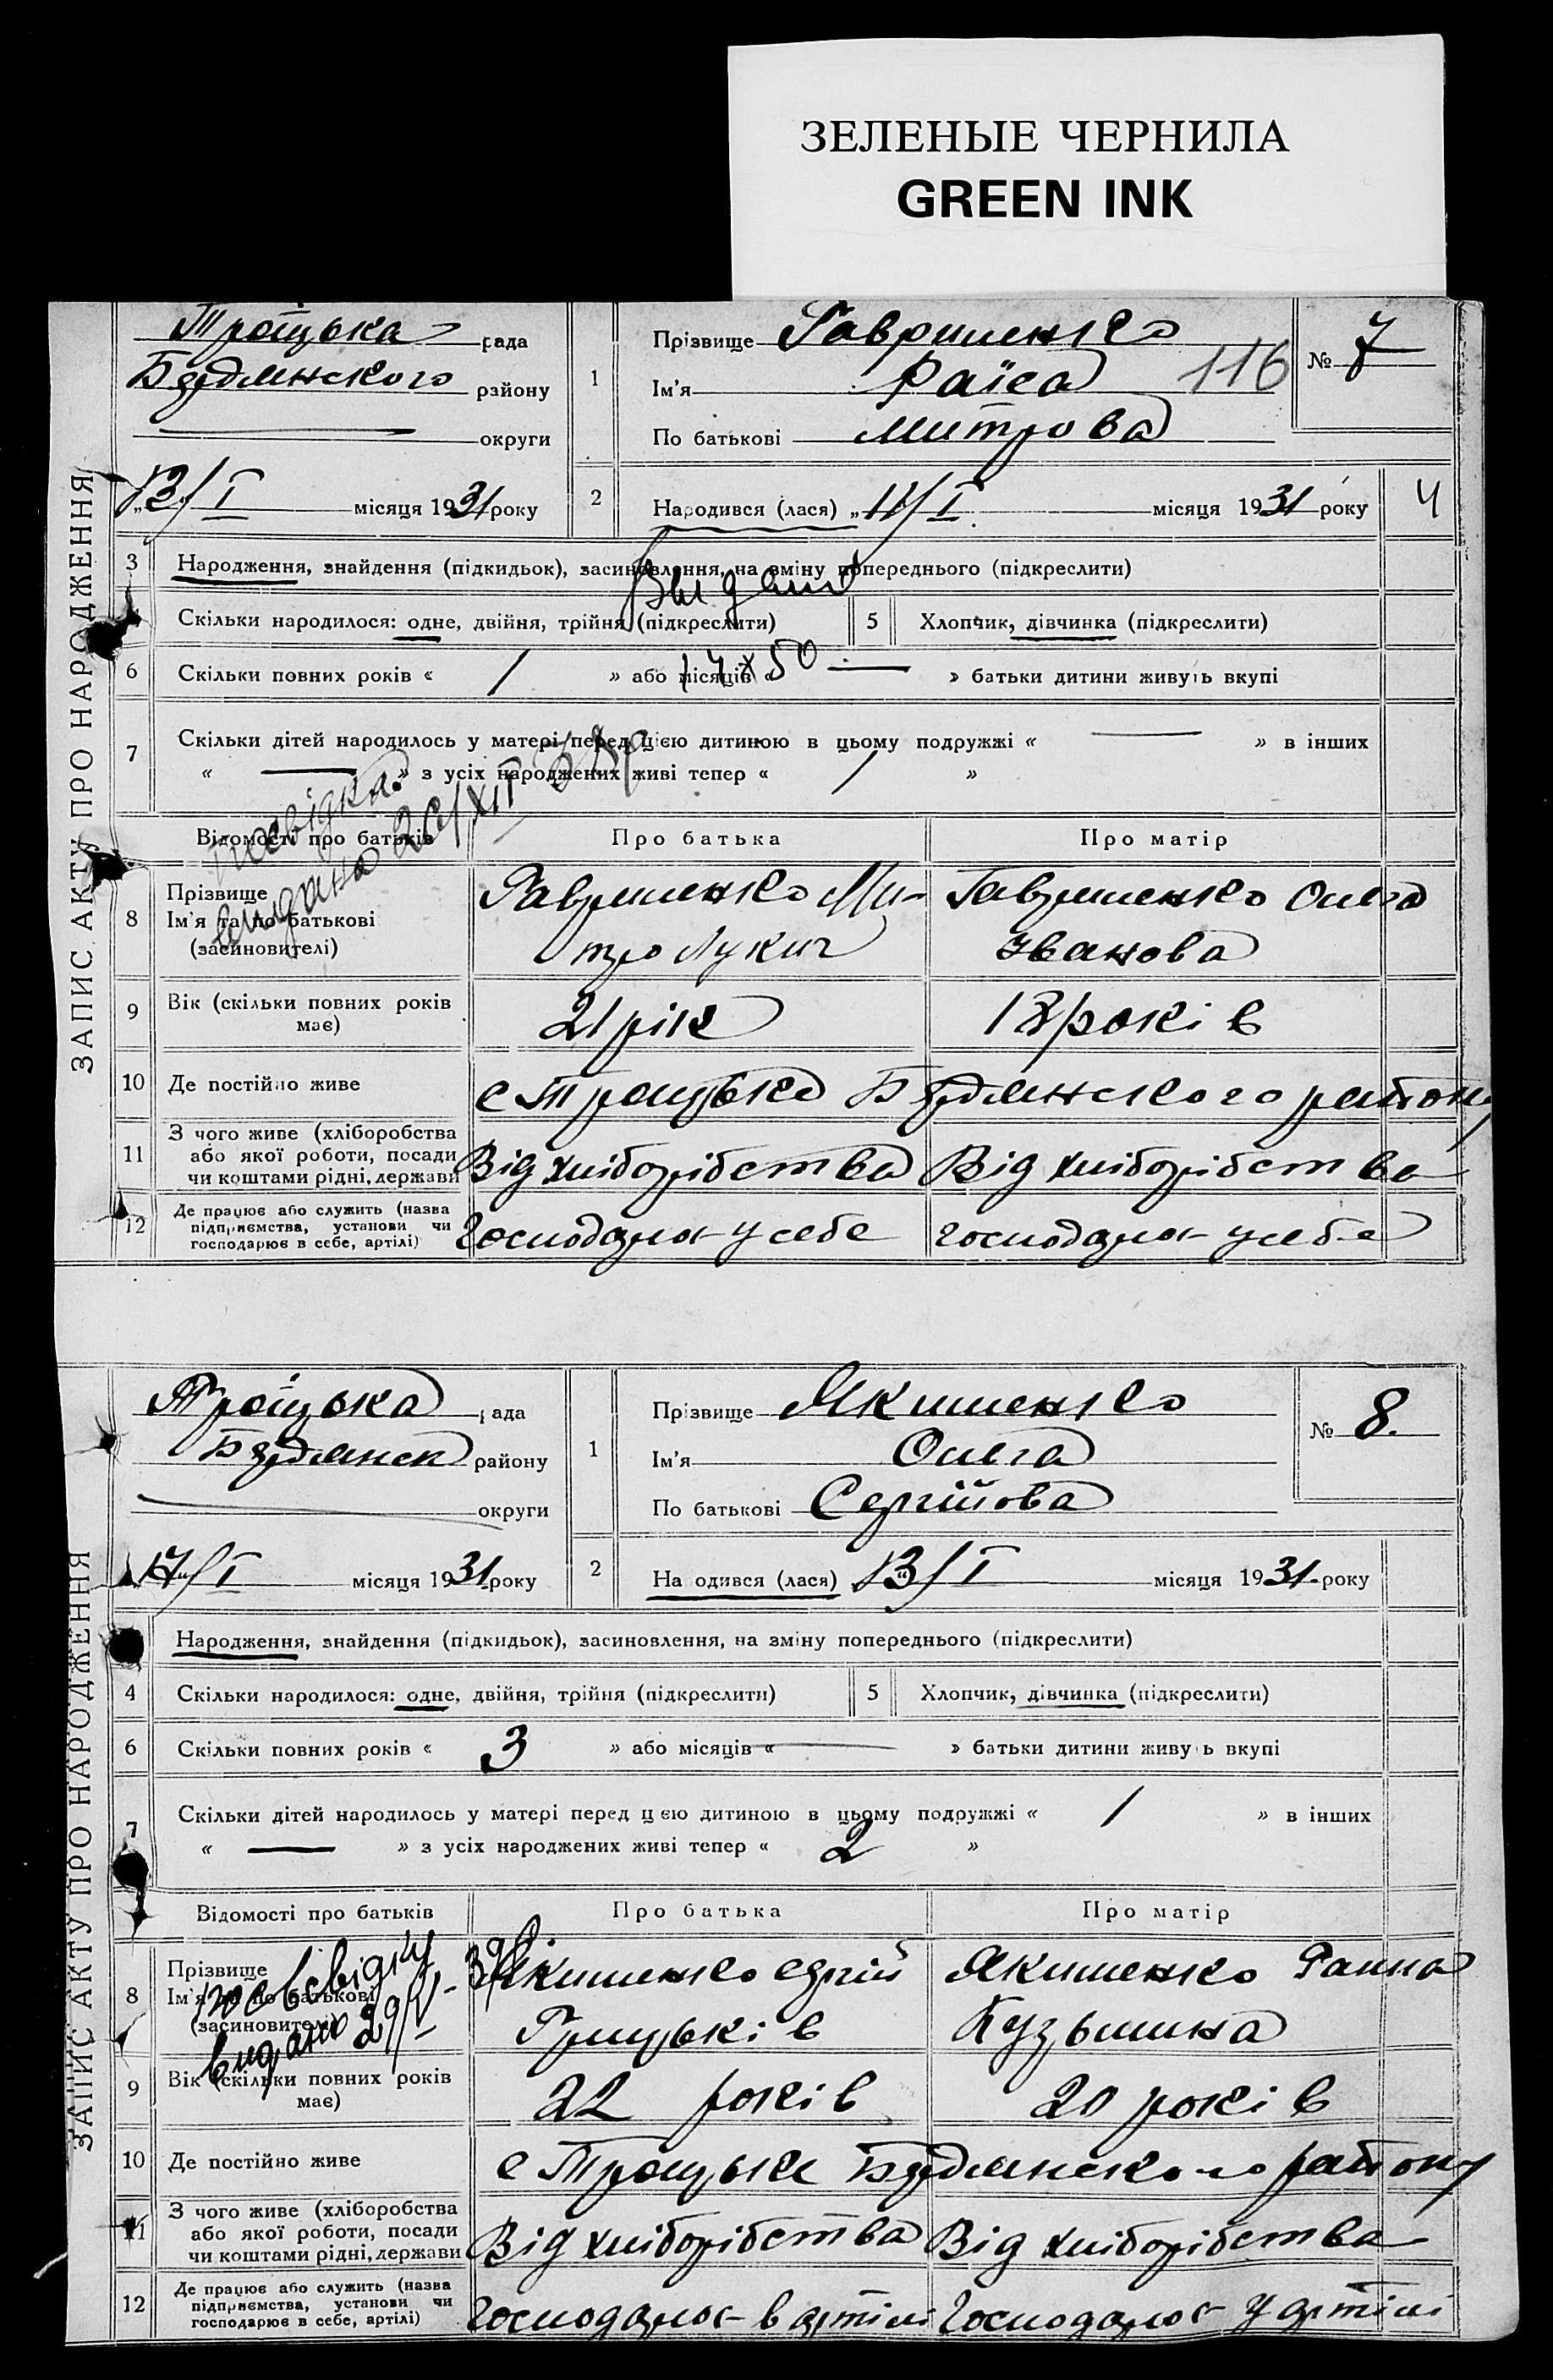 ЗЕЛЕНЫЕ ЧЕРНИЛА
GREEN INK
ЗАПИС АКТУ ПРО НАРОДЖЕННЯ
Троїцька рада
Бердянского району
округи
13/I місяця 1931 року
1
Прізвище Гавришенко
Ім'я Раїса
По батькові Митрова
116
№ 7
2
Народився (лася) „11/I місяця 1931 року
4
3 Народження, знайдення (підкидьок), засиновлення, на зміну попереднього (підкреслити)
Скільки народилося: одне, двійня, трійня (підкреслити) 5 Хлопчик, дівчинка (підкреслити)
6 Скільки повних років « 1 » або місяців « — » батьки дитини живуть вкупі
7 Скільки дітей народилось у матері перед цією дитиною в цьому подружжі « — » в інших
« — » з усіх народжених живі тепер « 1 »
посвідка
видана
Відомості про батьків Про батька Про матір
8 Прізвище Ім'я та по батькові (засиновителі)
Гавришенко Ми-
тро Лукич
Гавришенко Ольга
Іванова
9 Вік (скільки повних років має) 21 рік 18 років
10 Де постійно живе с Троицьке Бердянского району
11 З чого живе (хліборобства або якої роботи, посади чи коштами рідні, держави Від хліборібства Від хліборібства
12 Де працює або служить (назва підприємства, установи чи господарює в себе, артілі) Господарює у себе господарює у себе
ЗАПИС АКТУ ПРО НАРОДЖЕННЯ
Троїцька рада
Бердянск району
округи
17/I місяця 1931 року
1
Прізвище Якишенко
Ім'я Ольга
По батькові Сергійова
№ 8.
2
Народився (лася) „13/I місяця 1931. року
Народження, знайдення (підкидьок), засиновлення, на зміну попереднього (підкреслити)
4 Скільки народилося: одне, двійня, трійня (підкреслити) 5 Хлопчик, дівчинка (підкреслити)
6 Скільки повних років « 3 » або місяців « — » батьки дитини живуть вкупі
7 Скільки дітей народилось у матері перед цією дитиною в цьому подружжі « 1 » в інших
« — » з усіх народжених живі тепер « 2 »
Відомості про батьків Про батька Про матір
8 Прізвище Ім'я та по батькові (засиновителі)
видано
Якишенко Сергій
Грицьків
Якишенко Ганна
Кузьмина
9 Вік (скільки повних років має) 22 років 20 років
10 Де постійно живе с Троицьке Бердянского району
11 З чого живе (хліборобства або якої роботи, посади чи коштами рідні, держави Від хліборібства Від хліборібства
12 Де працює або служить (назва підприємства, установи чи господарює в себе, артілі) Господарює в артілі Господарює у артілі